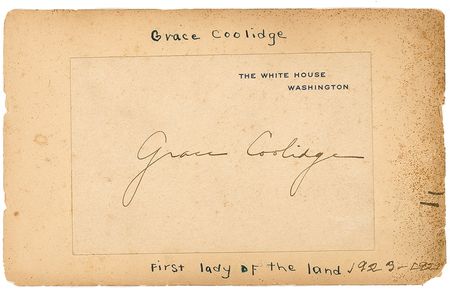 Grace Coolidge
THE WHITE HOUSE
WASHINGTON
Grace Coolidge
First lady of the land 1923-